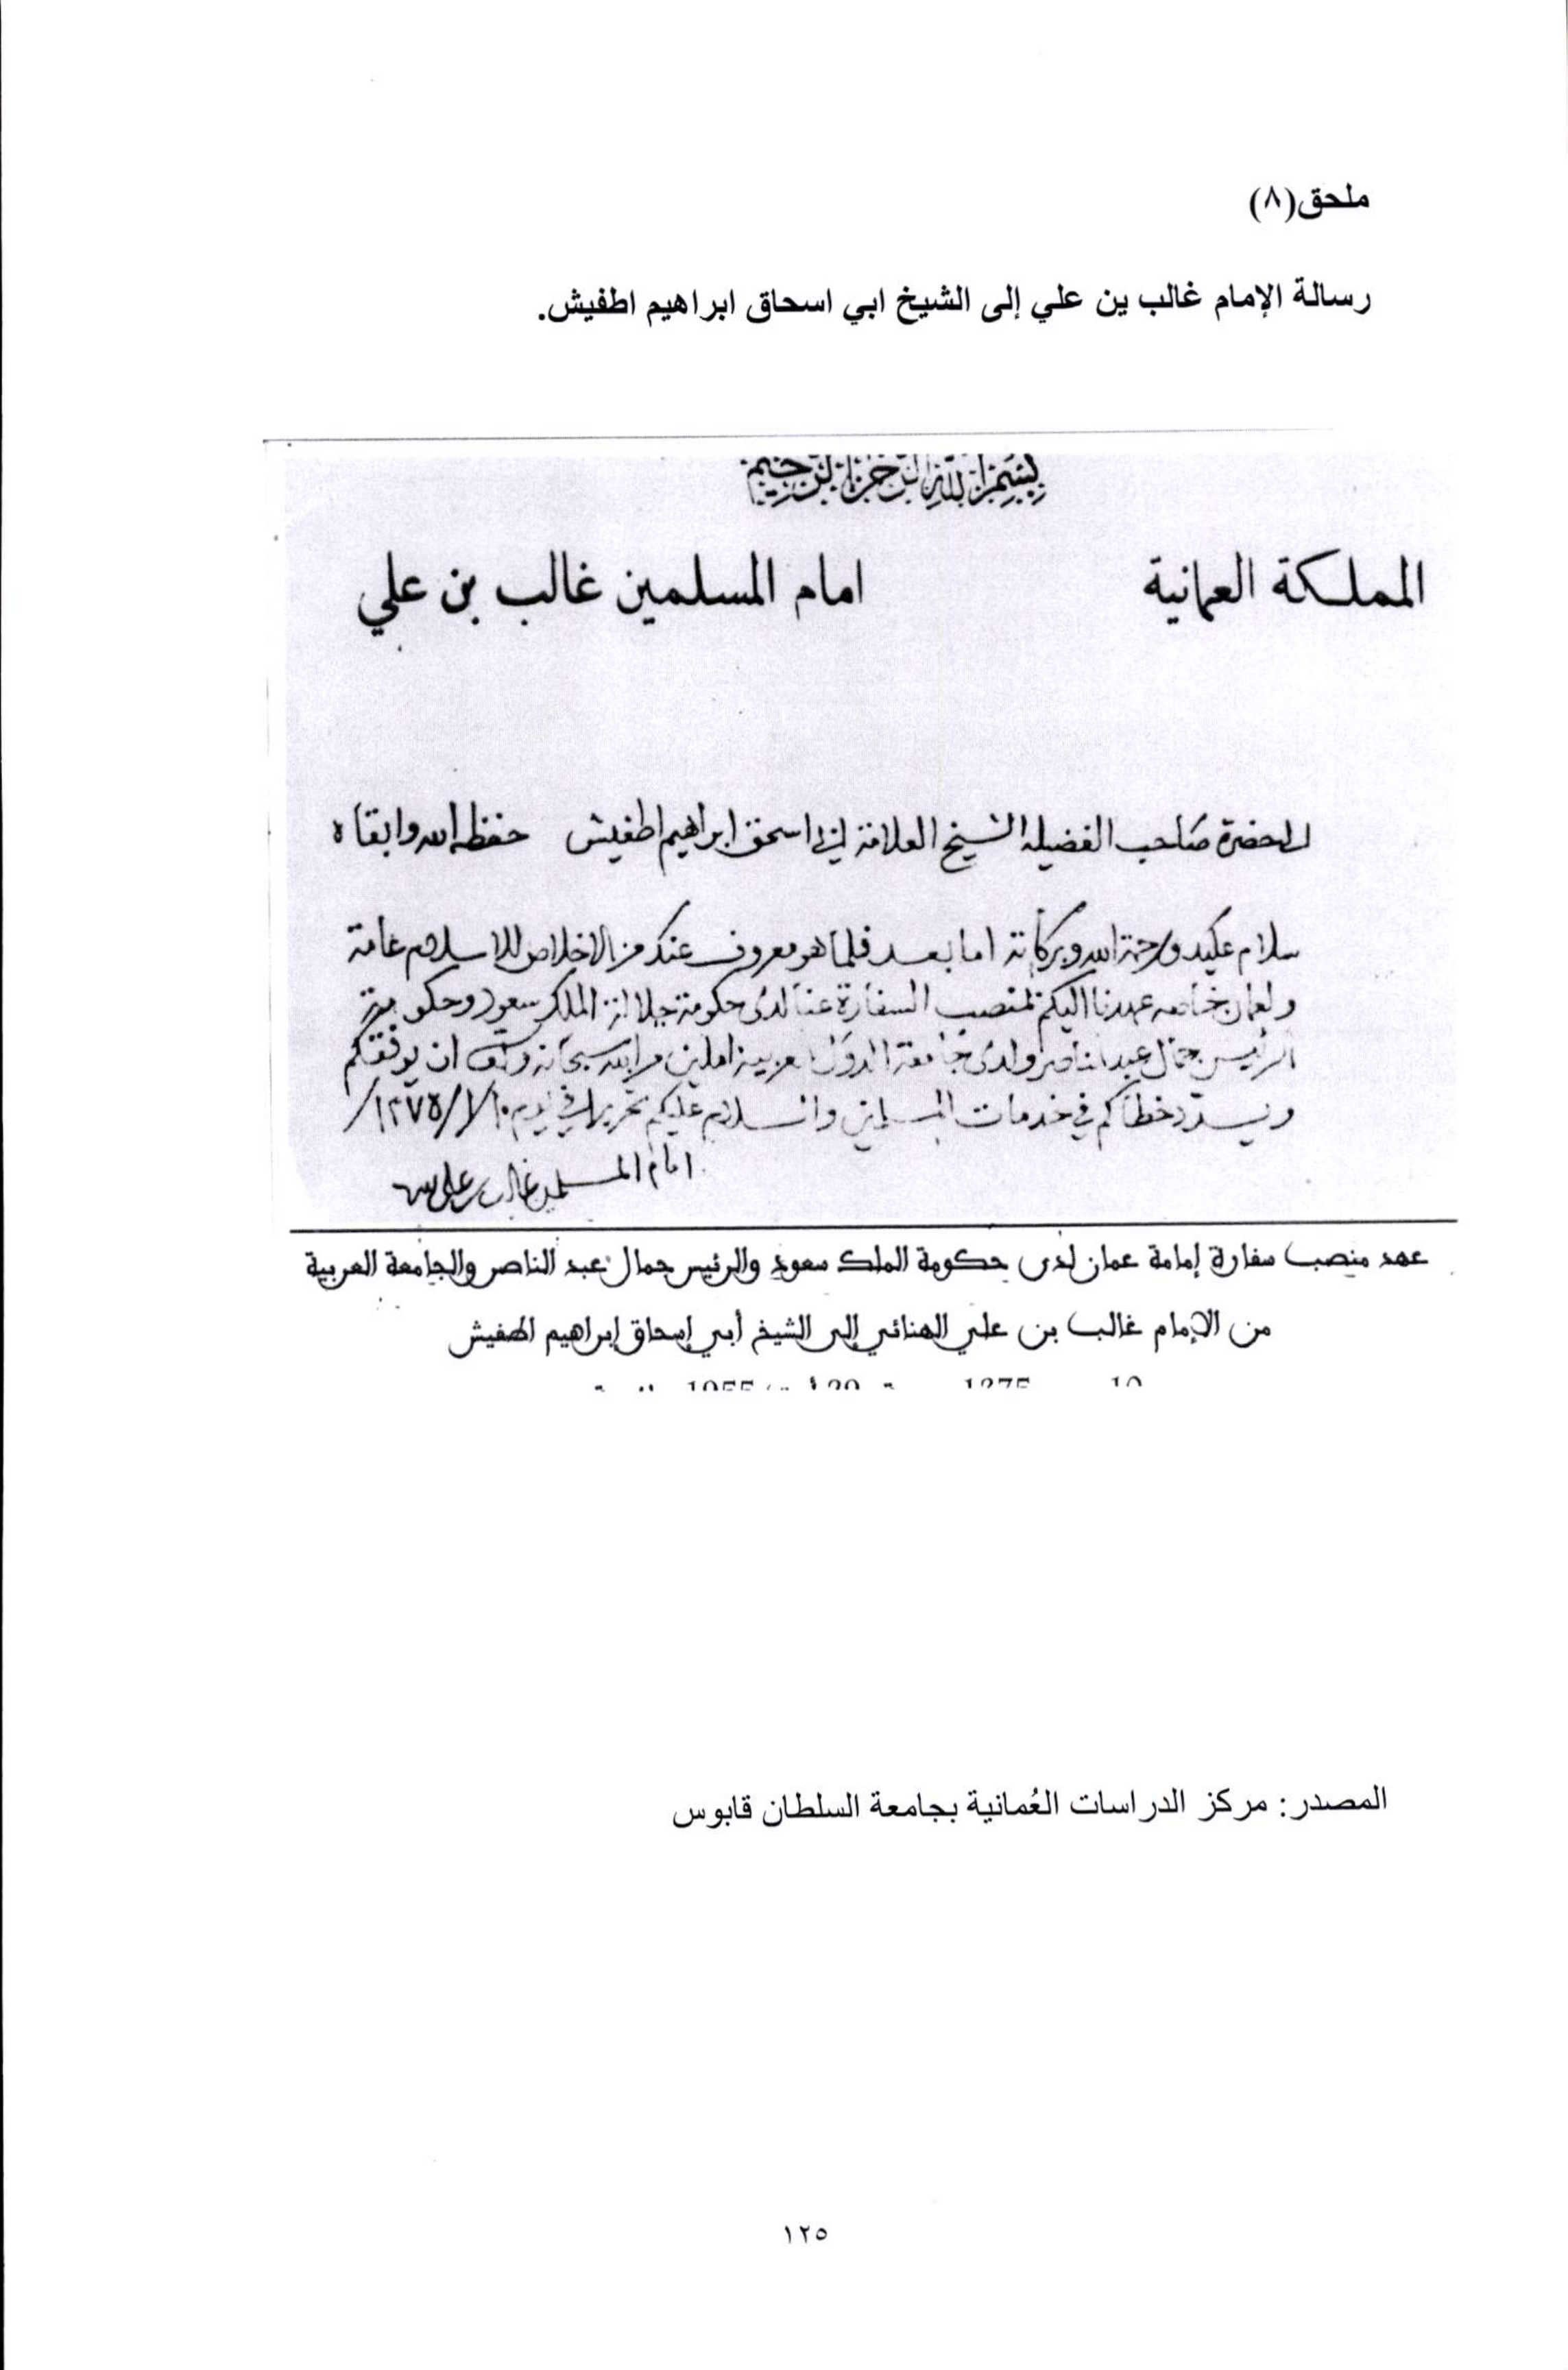 ملحق(٨)
رسالة الإمام غالب ين علي إلى الشيخ ابي اسحاق ابراهيم اطفيش.
بسم الله الرحمن الرحيم
المملكة العمانية امام المسلمين غالب بن علي
لحضرة صاحب الفضيلة الشيخ العلامة ابي اسحق ابراهيم اطفيش حفظه الله وابقاه
سلام عليكم ورحمة الله وبركاته اما بعد فلما هو معروف عنكم من الاخلاص للاسلام عامة
ولعمان خاصه عهدنا اليكم بمنصب السفارة عنا لدى حكومة جلالة الملك سعود وحكومة
الرئيس جمال عبد الناصر ولدى جامعة الدول العربية املين من الله سبحانه وتعالى ان يوفقكم
ويسدد خطاكم في خدمات المسلمين والسلام عليكم تحريرا في يوم ١٠/١/١٣٧٥/
امام المسلمين غالب بن علي
عهد منصب سفارة إمامة عمان لدى حكومة الملك سعود والرئيس جمال عبد الناصر والجامعة العربية
من الإمام غالب بن علي الهنائي إلى الشيخ أبي إسحاق إبراهيم اطفيش
المصدر: مركز الدراسات العُمانية بجامعة السلطان قابوس
١٢٥